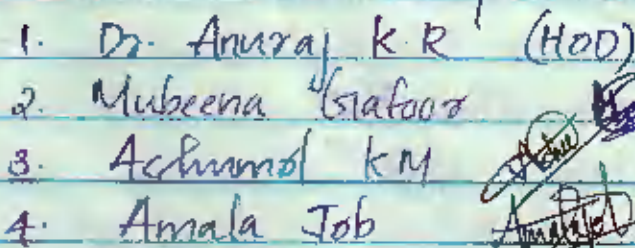 1. Dr. Anuraj K R (HOD)
2. Mubeena Gafoor
3. Achumol KM
4. Amala Job